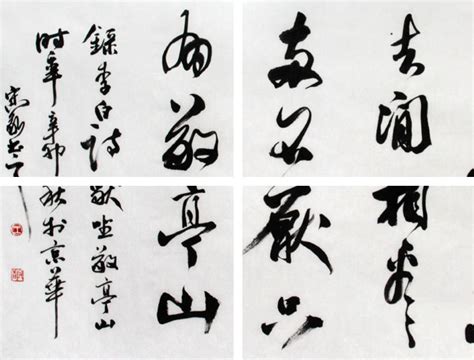 去闲相看
两不厌只
有敬亭山
錄李白詩独坐敬亭山
时年辛卯秋於京華